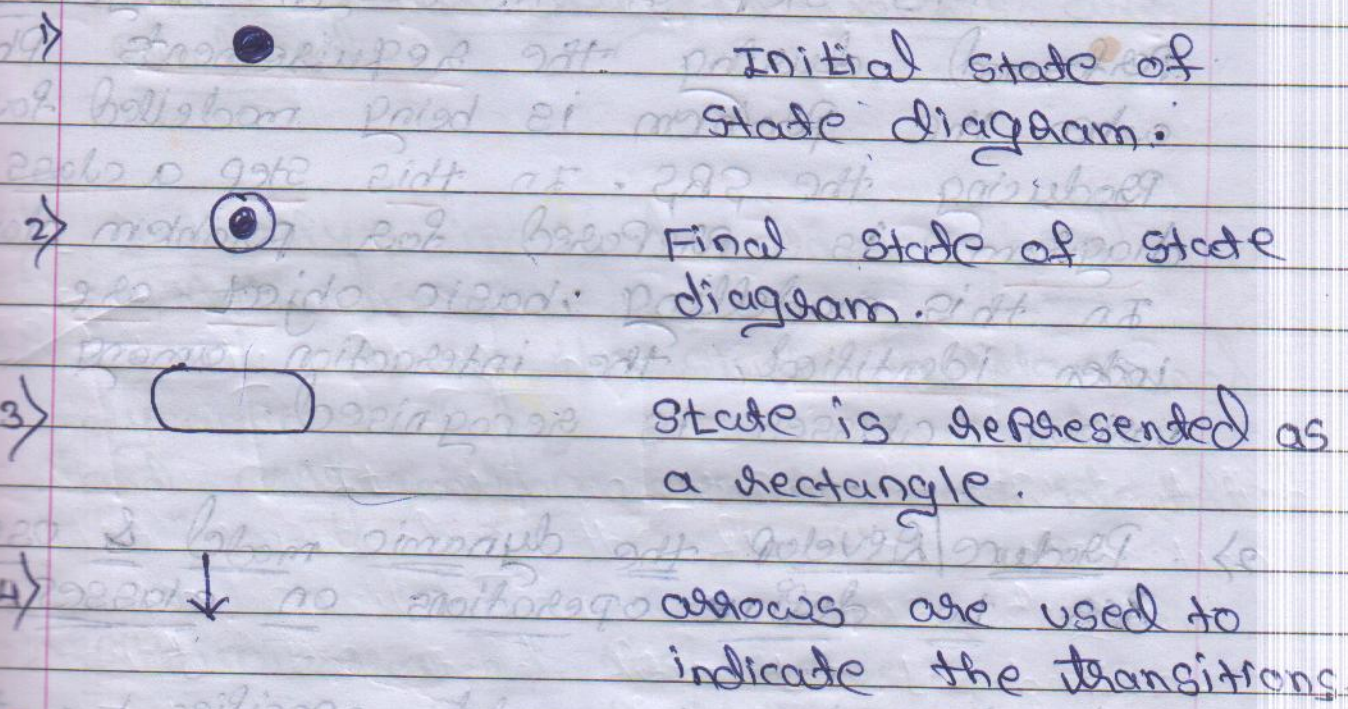 1) Initial state of
state diagram.
2) Final state of state
diagram.
3) state is represented as
a rectangle.
4) arrows are used to
indicate the transitions.